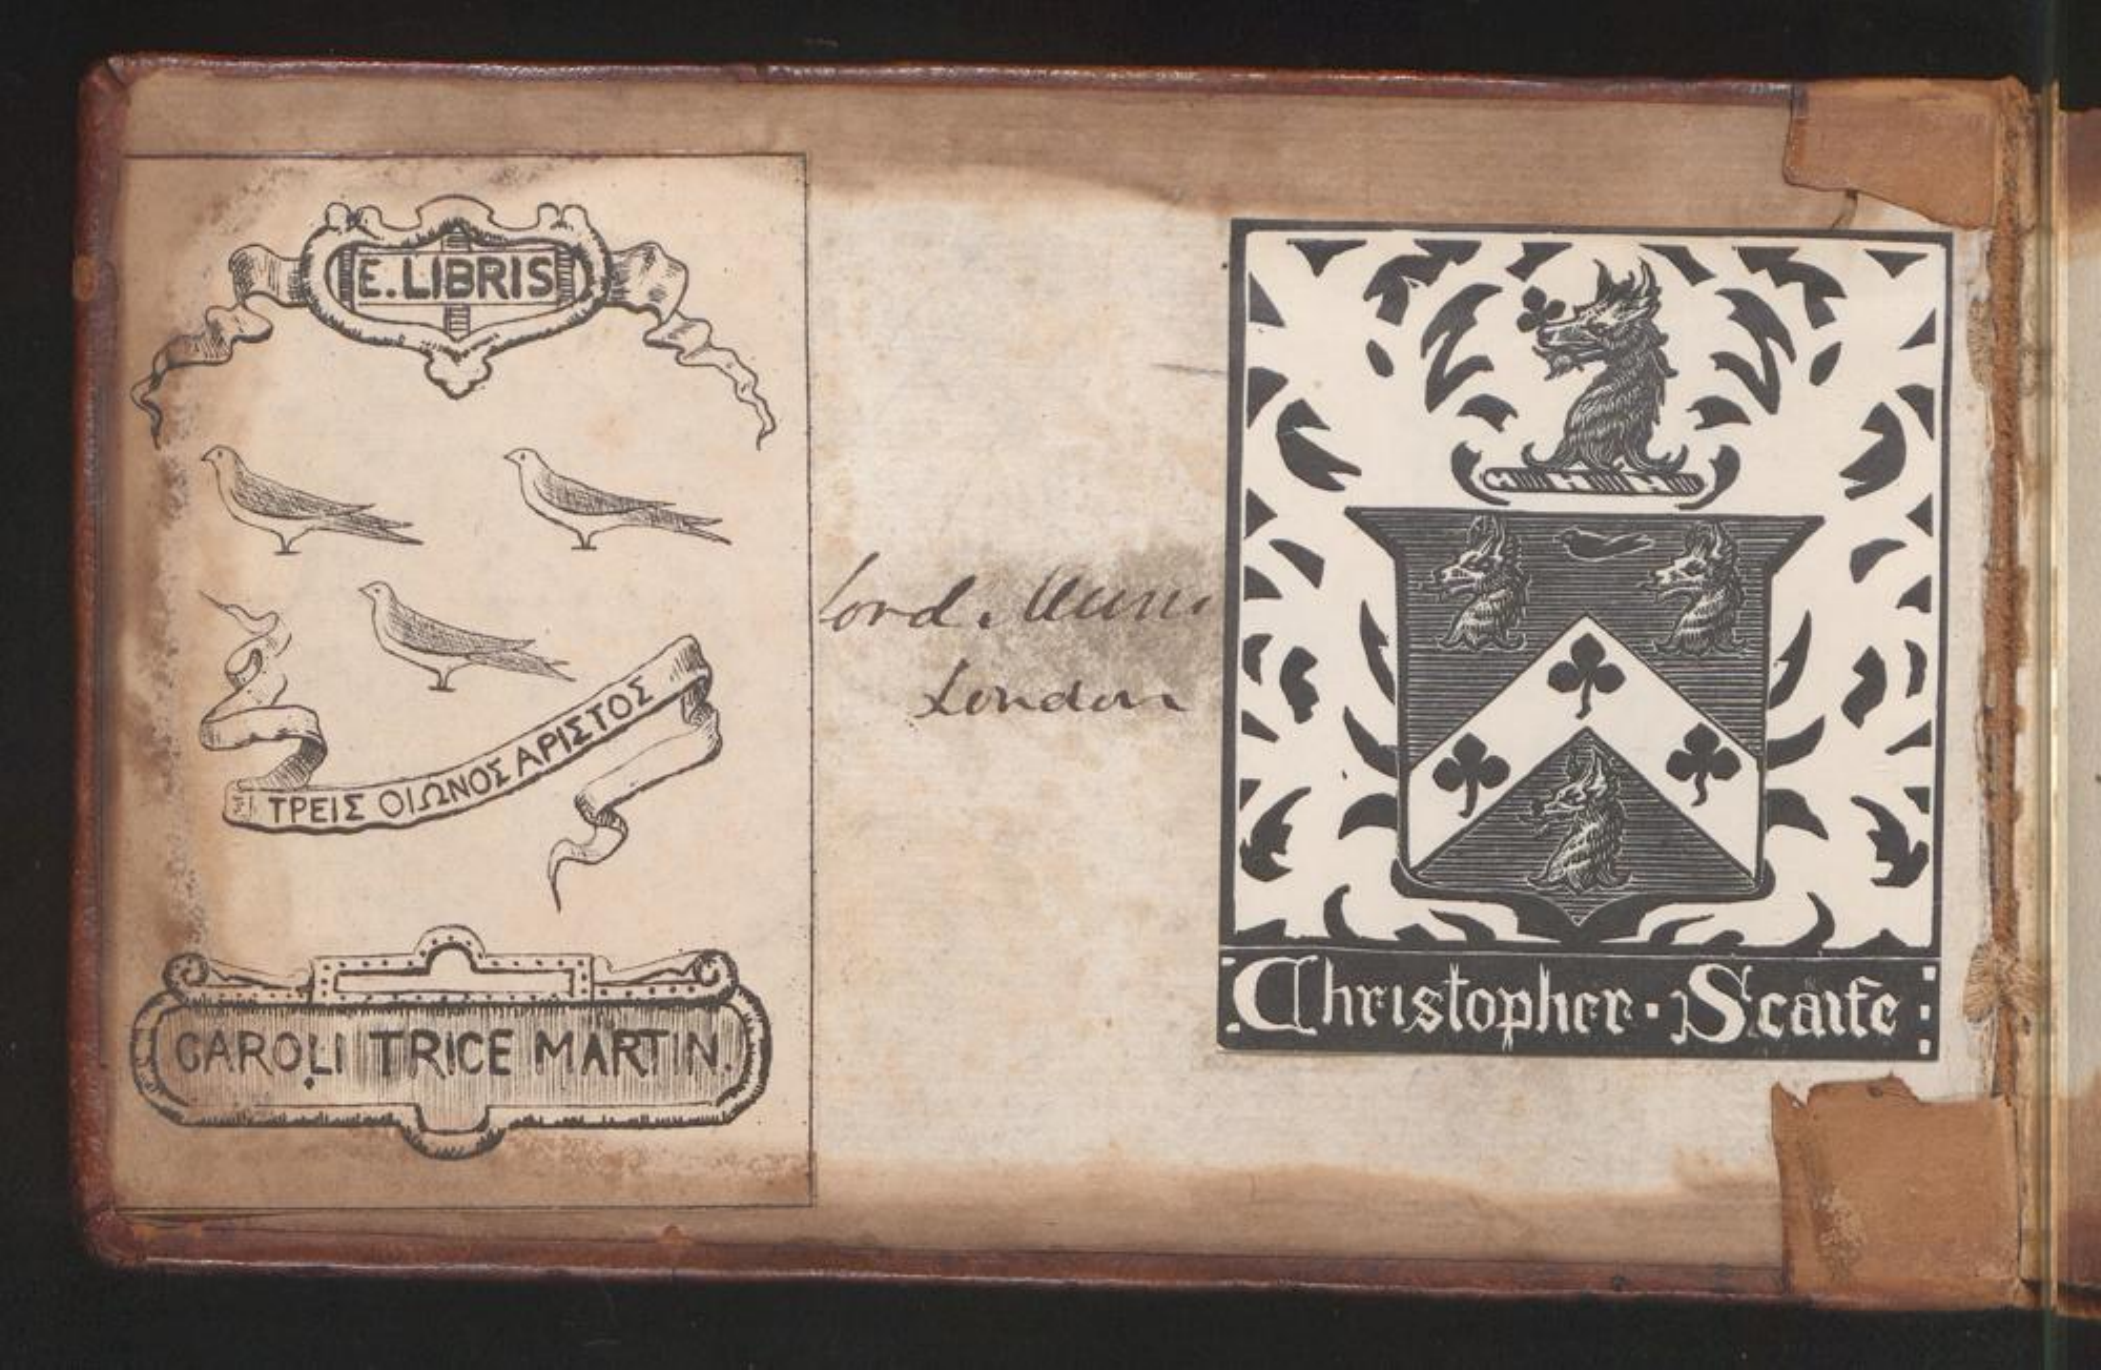 E. LIBRIS
ΤΡΕΙΣ ΟΙΩΝΟΣ ΑΡΙΣΤΟΣ
CAROLI TRICE MARTIN.
London
Christopher · Scaife